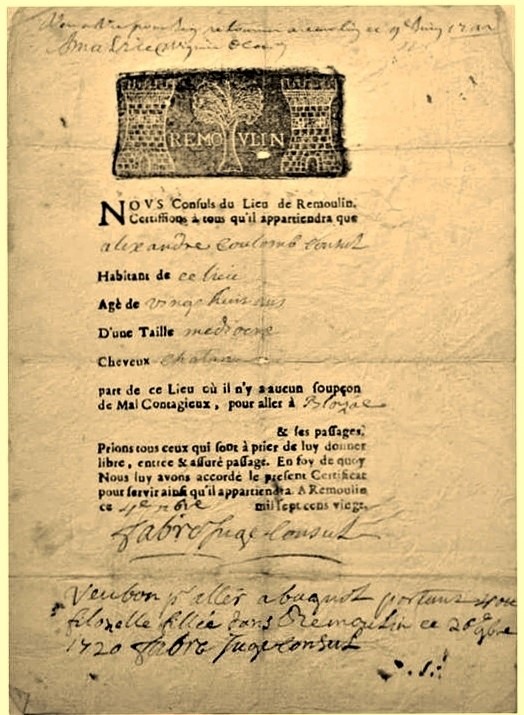 retourner a ce 9e Juin 1721
REMOVLIN
NOVS Consuls du Lieu de Remoulin.
Certiffions à tous qu'il appartiendra que
alexandre coulomb Consul
Habitant de ce lieu
Agé de vingt huit ans
D'une Taille mediocre
Cheveux chatain
part de ce Lieu où il n'y a aucun soupçon
de Mal Contagieux, pour aller à
& ses passages,
Prions tous ceux qui sont à prier de luy donner
libre, entrée & assuré passage. En foy de quoy
Nous luy avons accordé le present Certificat
pour servir ainsi qu'il appartiendra. A Remoulin
ce 4e mil sept cens vingt,
fabre Juge Consul
Veu bon pr aller a portant
filozelle fillee dans Remoulin ce 26e 9bre
1720 fabre Juge Consul